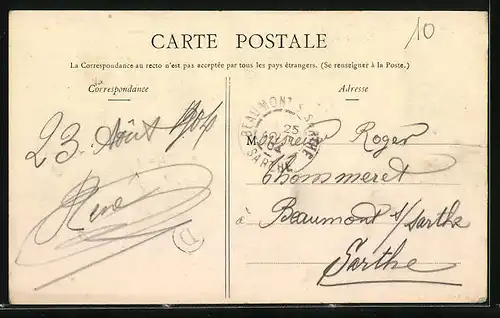 10
CARTE POSTALE
La Correspondance au recto n'est pas acceptée par tous les pays étrangers. (Se renseigner à la Poste.)
Correspondance
Adresse
23 Août 1904
René
D
BEAUMONT-S-SARTHE
25
04
SARTHE
Monsieur Roger
Thommeret
à Beaumont s/ Sarthe
Sarthe